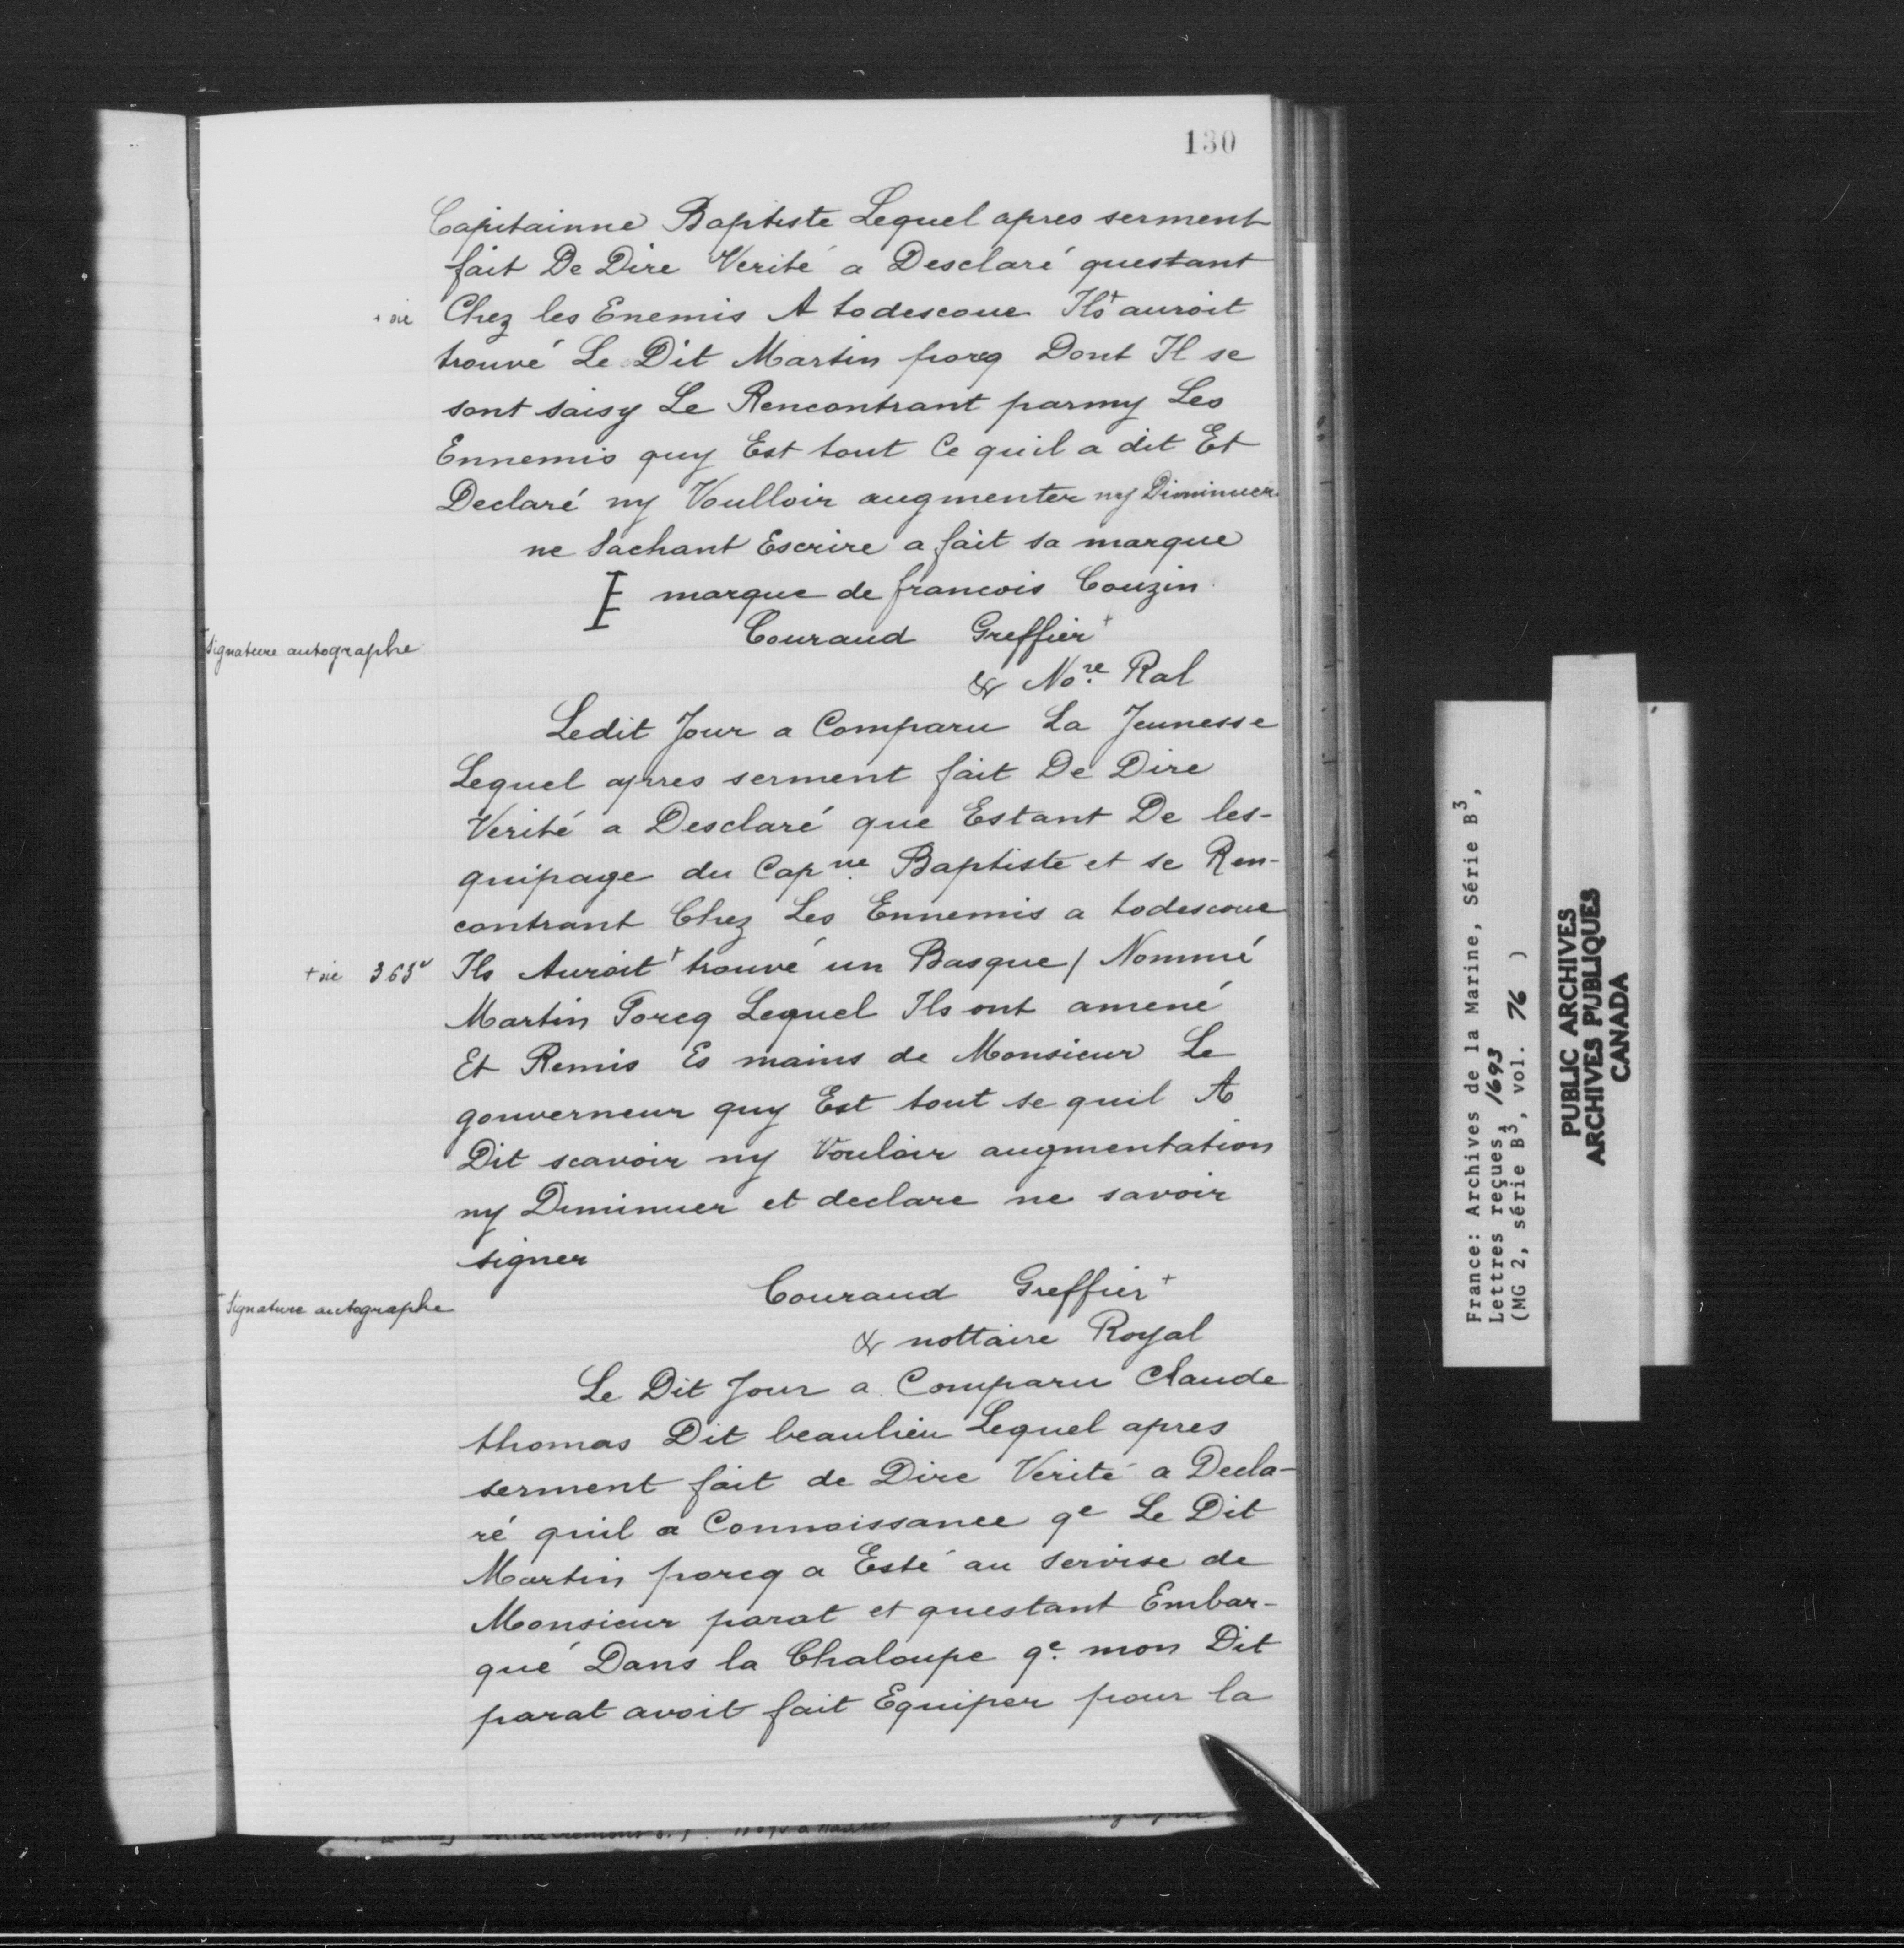 130
Capitainne Baptiste Lequel apres serment
fait De Dire Verité a Desclaré questant
+ sic Chez les Enemis A todescoue Ils+ auroit
trouvé Le Dit Martin porcq Dont Il se
sont saisy Le Rencontrant parmy Les
Ennemis quy Est tout Ce quil a dit Et
Declaré ny Voulloir augmenter ny Diminuer
ne Sachant Escrire a fait sa marque
marque de francois Couzin
Couraud Greffier+
+ Signature autographe
& No.re Ral
Ledit Jour a Comparu La Jeunesse
Lequel apres serment fait De Dire
Verité a Desclaré que Estant De les-
quipage du Cap.ne Baptiste et se Ren-
contrant Chez Les Ennemis a todescoue
+ sic 363v Ils Auroit+ trouvé un Basque / Nommé
Martin Porcq Lequel Ils ont amené
Et Remis Es mains de Monsieur Le
gouverneur quy Est tout se quil A
Dit scavoir ny Vouloir augmentation
ny Diminuer et declare ne savoir
signer
Couraud Greffier+
+ Signature autographe
& nottaire Royal
Le Dit Jour a Comparu Claude
thomas Dit beaulieu Lequel apres
serment fait de Dire Verité a Decla-
ré quil a Connoissance qe Le Dit
Martin porcq a Esté au servise de
Monsieur parat et questant Embar-
qué Dans la Chaloupe q.e mon Dit
parat avoit fait Equiper pour la
France: Archives de la Marine, Série B3,
Lettres reçues, 1693
(MG 2, série B3, vol. 76 )
PUBLIC ARCHIVES
ARCHIVES PUBLIQUES
CANADA